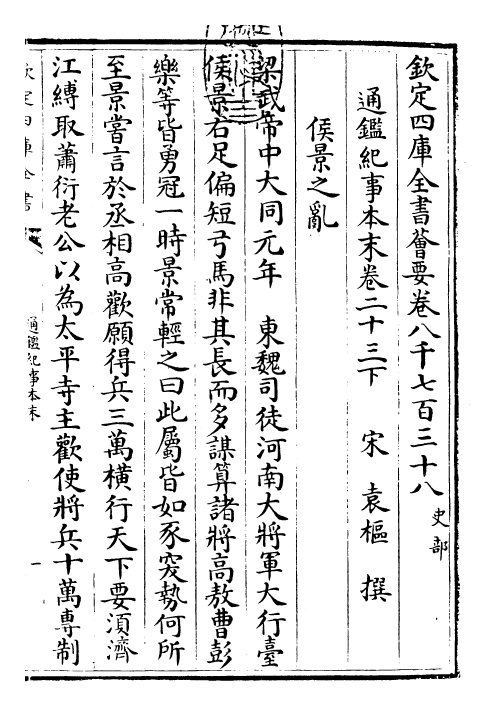 欽定四庫全書薈要卷八千七百三十八 史部
通鑑紀事本末卷二十三下 宋 袁樞 撰
侯景之亂
梁武帝中大同元年 東魏司徒河南大將軍大行臺
侯景右足偏短弓馬非其長而多謀算諸將高敖曹彭
樂等皆勇冠一時景常輕之曰此屬皆如豕突勢何所
至景嘗言於丞相高歡願得兵三萬橫行天下要須濟
江縛取蕭衍老公以為太平寺主歡使將兵十萬專制
欽定四庫全書
通鑑紀事本末
一